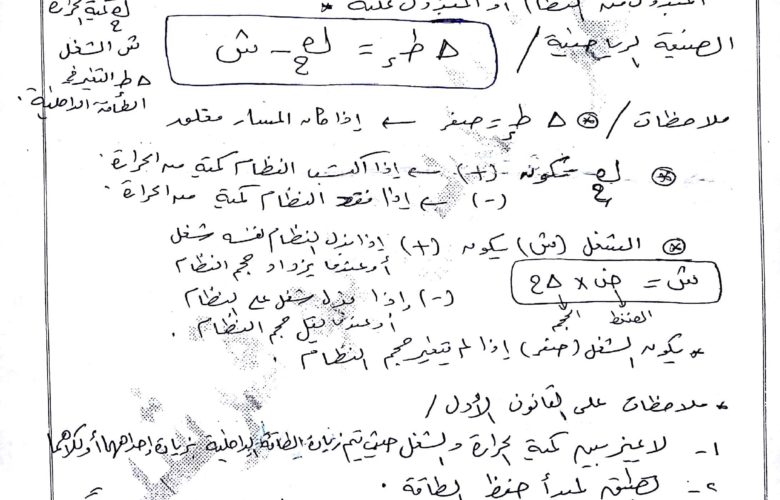 المبذول من النظام أو المبذول عليه *
كح كمية الحرارة
ش الشغل
Δ ط التغير في
الطاقة الداخلية .
الصيغة الرياضية / Δ طد = كح - ش
ملاحظات / * Δ طد = صفر ← إذا كان المسار مغلق
* كح تكون (+) ← إذا اكتسب النظام كمية من الحرارة .
(-) ← إذا فقد النظام كمية من الحرارة .
* الشغل (ش) يكون (+) إذا بذل النظام نفسه شغل
أو عندما يزداد حجم النظام
ش = ض × Δح
الضغط الحجم
(-) إذا بذل شغل على النظام
أو عندما يقل حجم النظام .
* يكون الشغل (صفر) إذا لم يتغير حجم النظام .
* ملاحظات على القانون الأول /
١- لا يميز بين كمية الحرارة والشغل حيث يتم زيادة الطاقة الداخلية بزيادة إحداهما أو كلاهما
٢- تطبيق لمبدأ حفظ الطاقة .